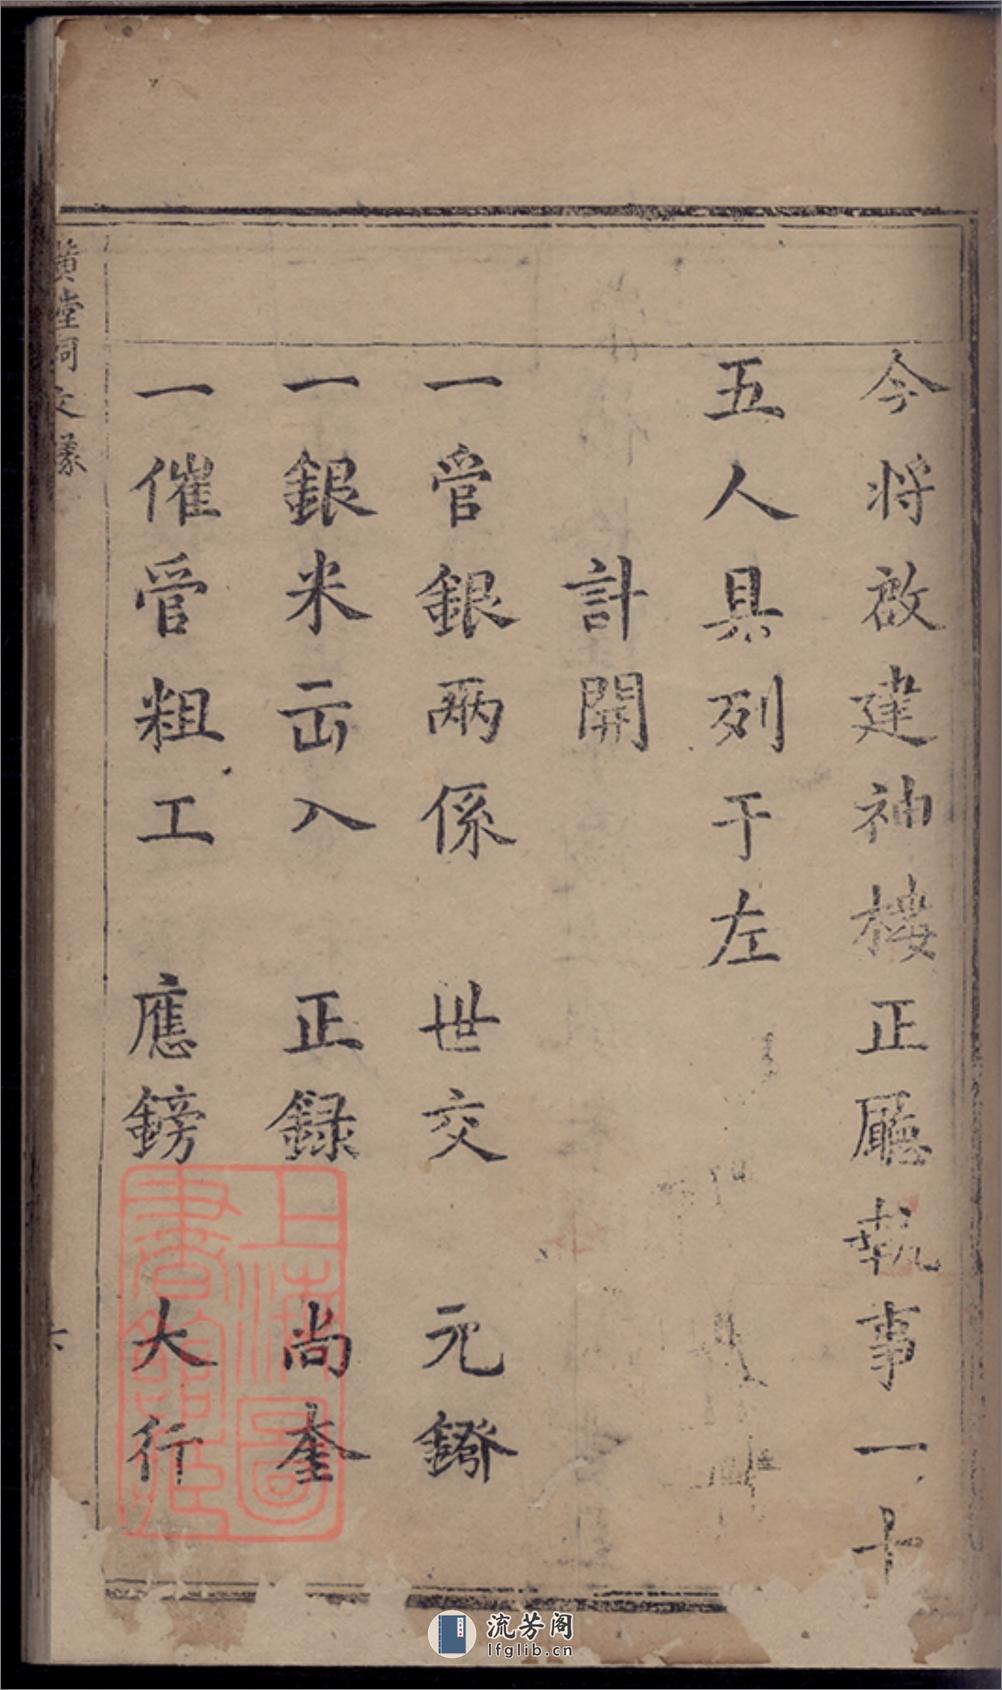 今将啟建神樓正廳執事一十
五人具列于左
計開
一管銀兩係 世交 元鏺
一銀米出入 正録 尚奎
一催管粗工 應鎊 大行
黄堂祠文
上海圖書館藏
流芳阁
lfglib.cn